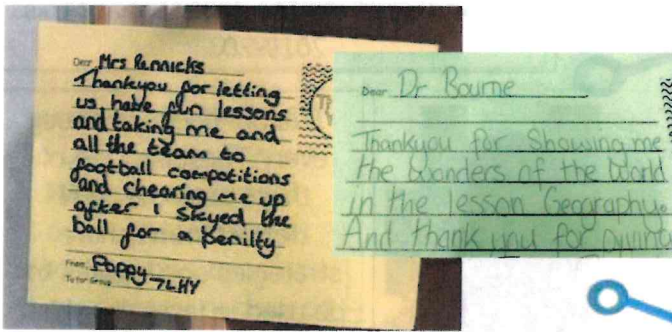 Dear Mrs Rennicks
Thankyou for letting
us have fun lessons
and taking me and
all the team to
football compotitions
and chearing me up
after I skyed the
ball for a penilty
From, Poppy
Tutor Group 7LHY
Dear Dr Bourne
Thankyou for Showing me
the Wonders of the World
in the lesson Geography.
And thank you for